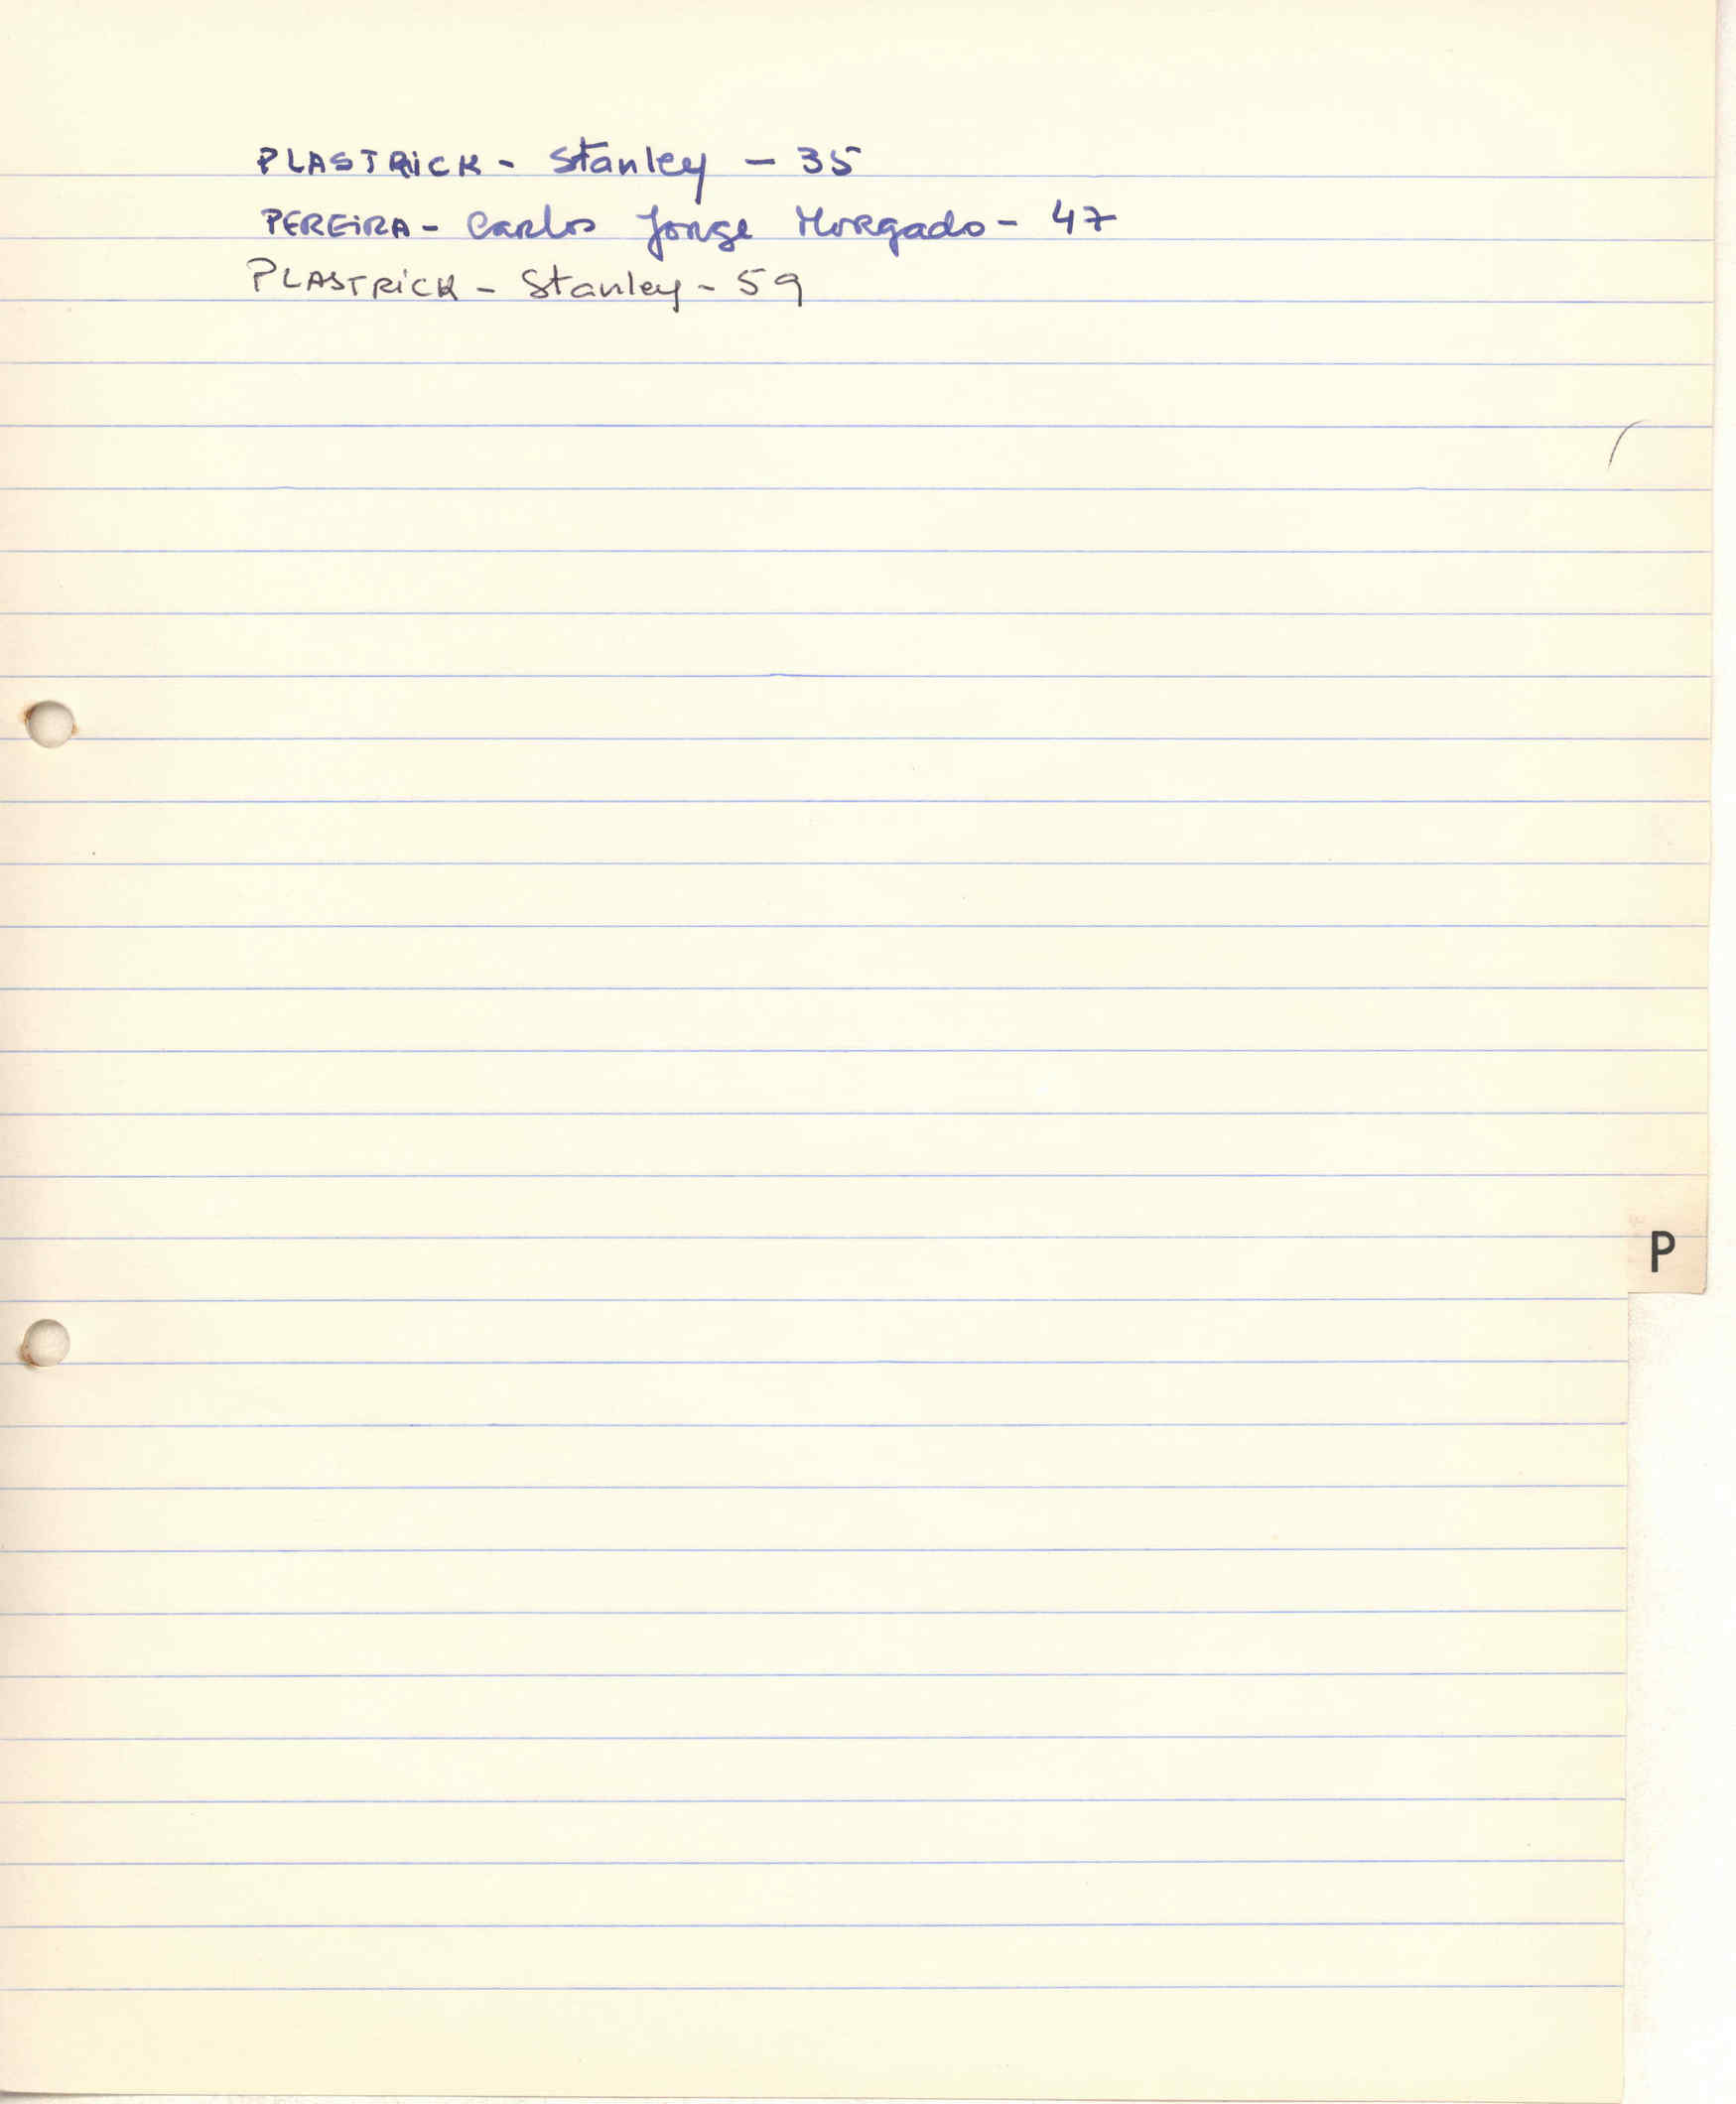 PLASTRiCK - Stanley - 35
PEREiRA - Carlos Jorge Morgado - 47
PLASTRiCK - Stanley - 59
P